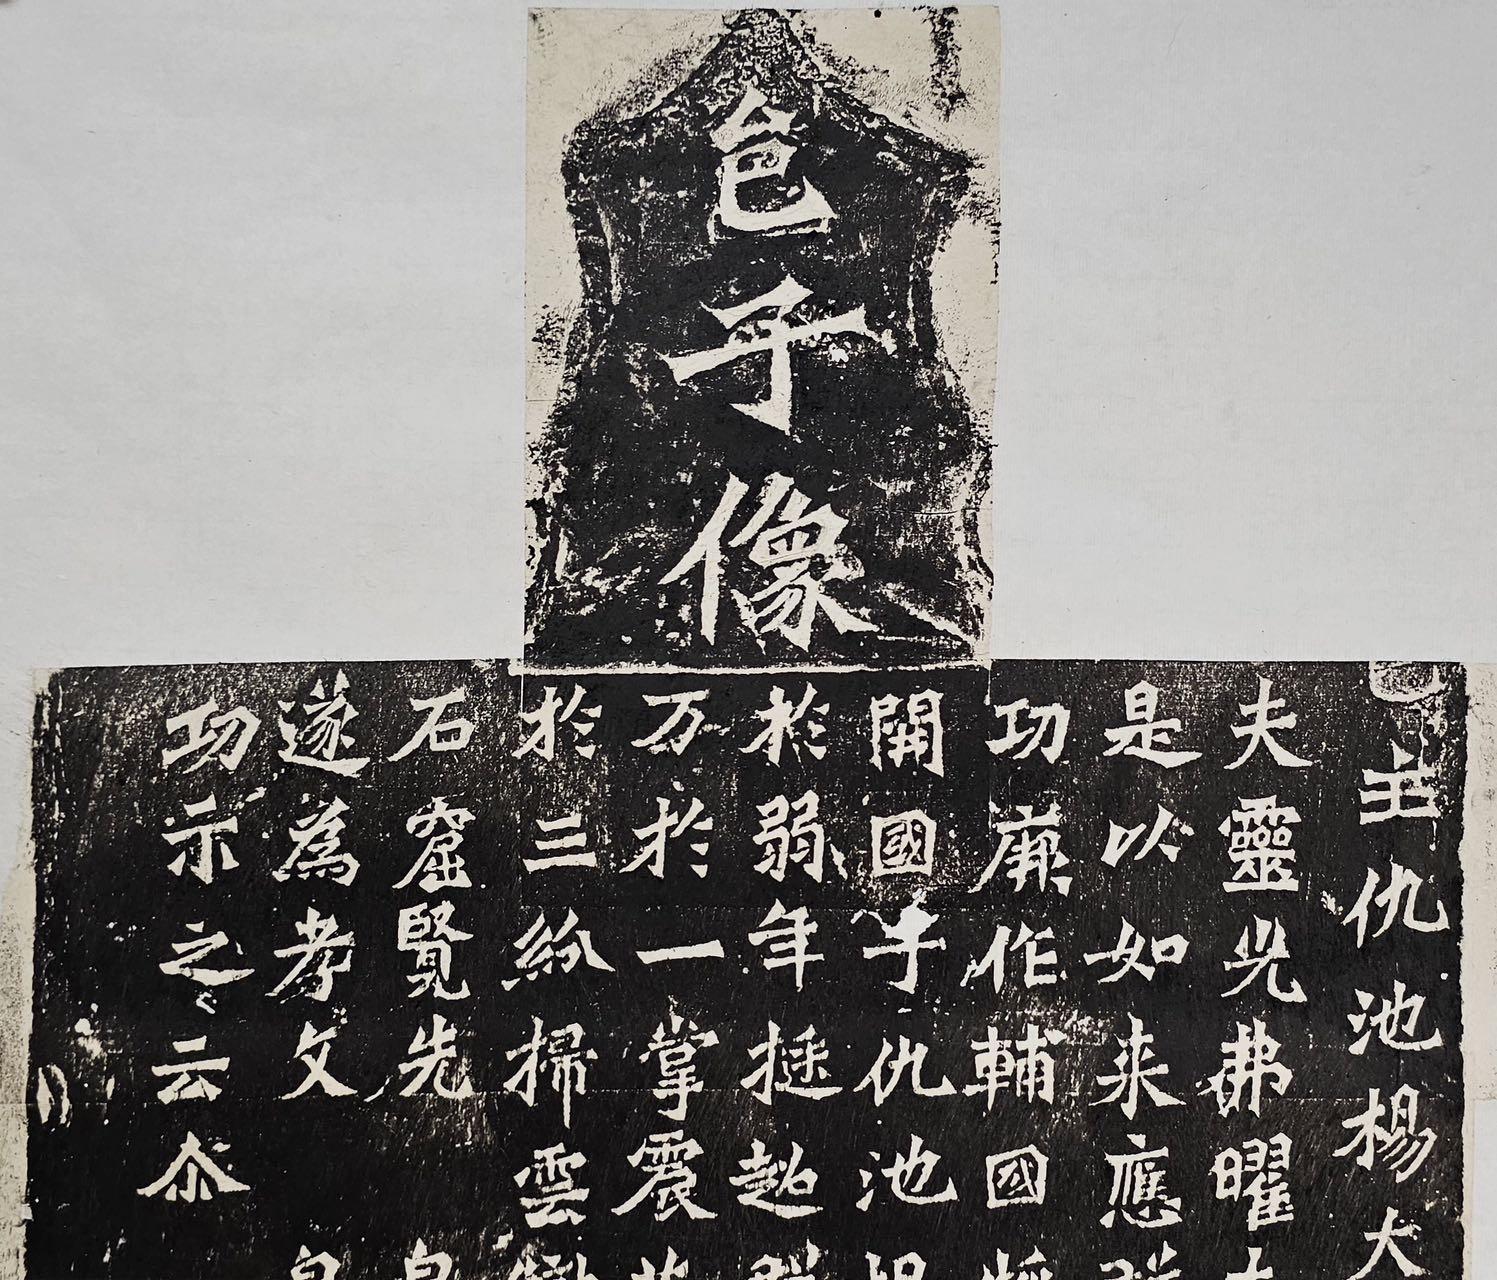 邑子像
邑主仇池楊大
夫靈光弗曜
是以如来應
功厥作輔国
開國子仇池
於弱年挺超
万於一掌震
於三紛掃雲
石窟覽先皇
遂為孝文皇
功示之云尒